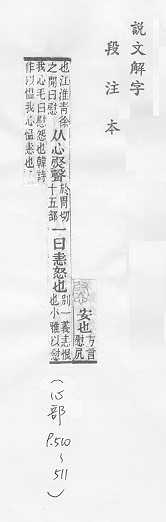 説文解字
段注本
安也
方言
慰凥
也江淮青徐
之閒曰慰
从心㷉聲
於胃切
十五部
一曰恚怒也
別一義恚恨
也小雅以慰
我心毛曰慰怨也韓詩
作以慍我心慍恚也
(心部
P.510
~
511
)